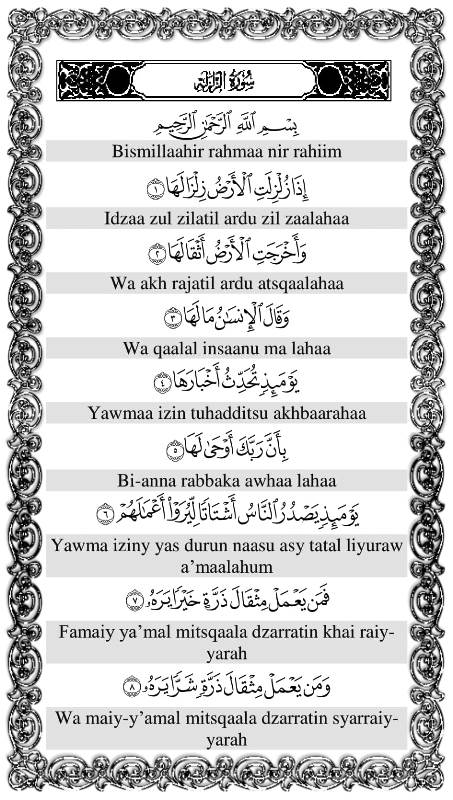 سُورَةُ الزَّلْزَلَةِ
بِسْمِ اللَّهِ الرَّحْمَٰنِ الرَّحِيمِ
Bismillaahir rahmaa nir rahiim
إِذَا زُلْزِلَتِ الْأَرْضُ زِلْزَالَهَا ١
Idzaa zul zilatil ardu zil zaalahaa
وَأَخْرَجَتِ الْأَرْضُ أَثْقَالَهَا ٢
Wa akh rajatil ardu atsqaalahaa
وَقَالَ الْإِنسَانُ مَا لَهَا ٣
Wa qaalal insaanu ma lahaa
يَوْمَئِذٍ تُحَدِّثُ أَخْبَارَهَا ٤
Yawmaa izin tuhadditsu akhbaarahaa
بِأَنَّ رَبَّكَ أَوْحَىٰ لَهَا ٥
Bi-anna rabbaka awhaa lahaa
يَوْمَئِذٍ يَصْدُرُ النَّاسُ أَشْتَاتًا لِّيُرَوْا أَعْمَالَهُمْ ٦
Yawma iziny yas durun naasu asy tatal liyuraw
a’maalahum
فَمَن يَعْمَلْ مِثْقَالَ ذَرَّةٍ خَيْرًا يَرَهُ ٧
Famaiy ya’mal mitsqaala dzarratin khai raiy-
yarah
وَمَن يَعْمَلْ مِثْقَالَ ذَرَّةٍ شَرًّا يَرَهُ ٨
Wa maiy-y’amal mitsqaala dzarratin syarraiy-
yarah